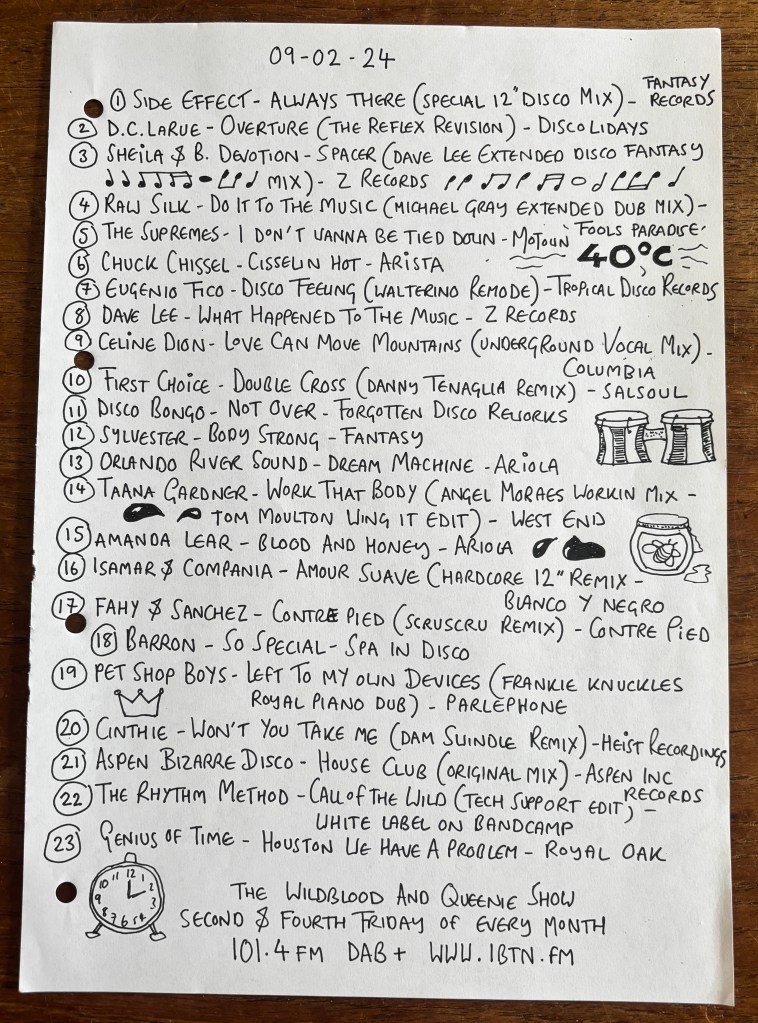 09-02-24
① SIDE EFFECT - ALWAYS THERE (SPECIAL 12" DISCO MIX) - FANTASY RECORDS
② D.C. LARUE - OVERTURE (THE REFLEX REVISION) - DISCOLIDAYS
③ SHEILA & B. DEVOTION - SPACER (DAVE LEE EXTENDED DISCO FANTASY
MIX) - Z RECORDS
④ RAW SILK - DO IT TO THE MUSIC (MICHAEL GRAY EXTENDED DUB MIX) -
FOOLS PARADISE
⑤ THE SUPREMES - I DON'T WANNA BE TIED DOWN - MOTOWN
40°C
⑥ CHUCK CHISSEL - CISSELIN HOT - ARISTA
⑦ EUGENIO FICO - DISCO FEELING (WALTERINO REMODE) - TROPICAL DISCO RECORDS
⑧ DAVE LEE - WHAT HAPPENED TO THE MUSIC - Z RECORDS
⑨ CELINE DION - LOVE CAN MOVE MOUNTAINS (UNDERGROUND VOCAL MIX) -
COLUMBIA
⑩ FIRST CHOICE - DOUBLE CROSS (DANNY TENAGLIA REMIX) - SALSOUL
⑪ DISCO BONGO - NOT OVER - FORGOTTEN DISCO REWORKS
⑫ SYLVESTER - BODY STRONG - FANTASY
⑬ ORLANDO RIVER SOUND - DREAM MACHINE - ARIOLA
⑭ TAANA GARDNER - WORK THAT BODY (ANGEL MORAES WORKIN MIX -
TOM MOULTON WING IT EDIT) - WEST END
⑮ AMANDA LEAR - BLOOD AND HONEY - ARIOLA
⑯ ISAMAR & COMPANIA - AMOUR SUAVE (HARDCORE 12" REMIX -
BLANCO Y NEGRO
⑰ FAHY & SANCHEZ - CONTRE PIED (SCRUSCRU REMIX) - CONTRE PIED
⑱ BARRON - SO SPECIAL - SPA IN DISCO
⑲ PET SHOP BOYS - LEFT TO MY OWN DEVICES (FRANKIE KNUCKLES
ROYAL PIANO DUB) - PARLEPHONE
⑳ CINTHIE - WON'T YOU TAKE ME (DAM SWINDLE REMIX) - HEIST RECORDINGS
㉑ ASPEN BIZARRE DISCO - HOUSE CLUB (ORIGINAL MIX) - ASPEN INC
RECORDS
㉒ THE RHYTHM METHOD - CALL OF THE WILD (TECH SUPPORT EDIT) -
WHITE LABEL ON BANDCAMP
㉓ GENIUS OF TIME - HOUSTON WE HAVE A PROBLEM - ROYAL OAK
12 1 2 3 4 5 6 7 8 9 10 11
THE WILDBLOOD AND QUEENIE SHOW
SECOND & FOURTH FRIDAY OF EVERY MONTH
101.4 FM DAB+ WWW.1BTN.FM